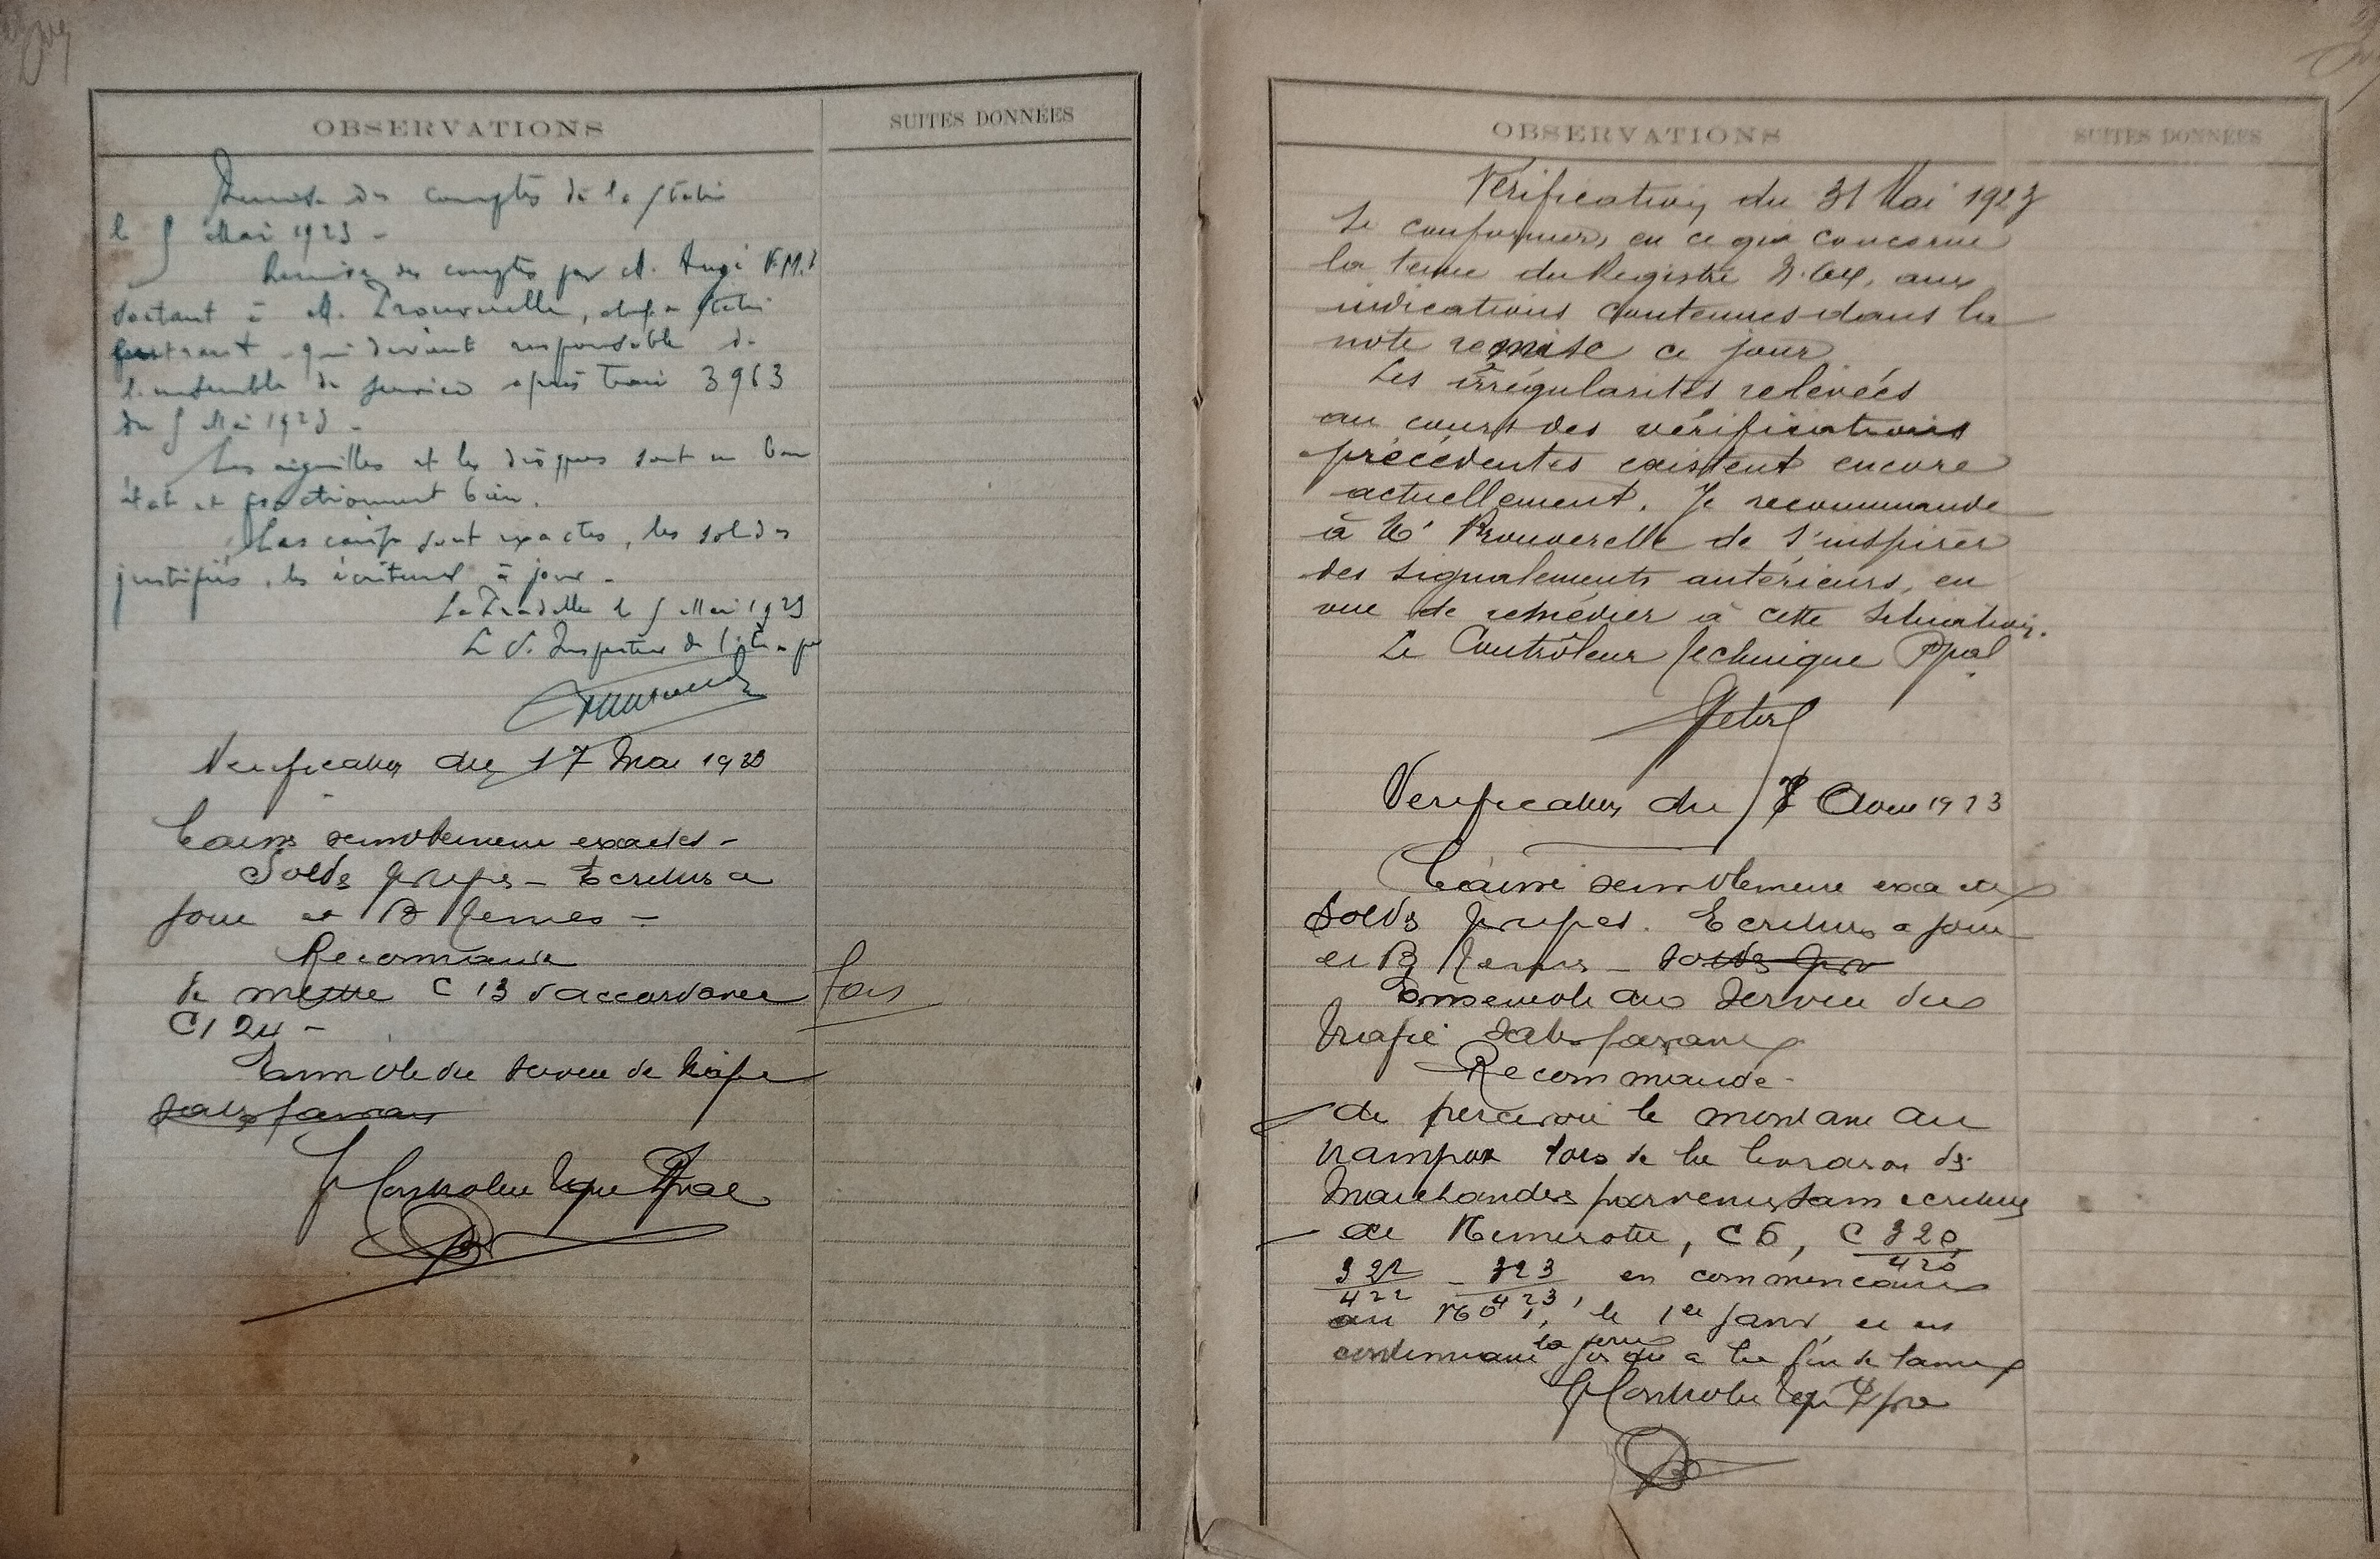 OBSERVATIONS
SUITES DONNÉES
Remise des comptes de la station
le 5 Mai 1923 -
Remise des comptes par M.
sortant à M. Prouverelle, chef de station
entrant qui devient responsable de
l'ensemble du service après train 3963
du 5 Mai 1923 -
Les aiguilles et les disques sont en bon
état et fonctionnent bien.
Les caisses sont exactes, les soldes
justifiés, les écritures à jour -
le 5 Mai 1923
Le S. Inspecteur de l'
Verification du 17 Mai 1923
Caisse semblement exactes -
Soldes justifiés - Ecritures a
jour et B tenues -
Recommande
de mettre C 13 d'accord avec
C 124 -
fais
Ensemble du service de trafic
satisfaisant
Le Controleur Tque Ppal
OBSERVATIONS
SUITES DONNÉES
Vérification du 31 Mai 1923
Se conformer, en ce qui concerne
la tenue du Registre aux
indications contenues dans la
note remise ce jour
Les irrégularités relevées
au cours des vérifications
précédentes existent encore
actuellement. Je recommande
à Mr Prouverelle de s'inspirer
des signalements antérieurs, en
vue de remédier à cette situation.
Le Contrôleur Technique Ppal
Verification du 7 Aout 1923
Caisse semblement exacte
Soldes justifiés. Ecritures a jour
et B tenues - soldes
Ensemble du Service du
trafic satisfaisant
Recommande -
- de percevoir le montant du
transport lors de la livraison des
marchandises parvenues sans ecritures
- de Numeroter, C 6, C 320/420
322/422 - 323/423, en commencant
au No 1, le 1er janv et en
continuant la serie jusqu a la fin de l'annee
Le Controleur Tque Ppal